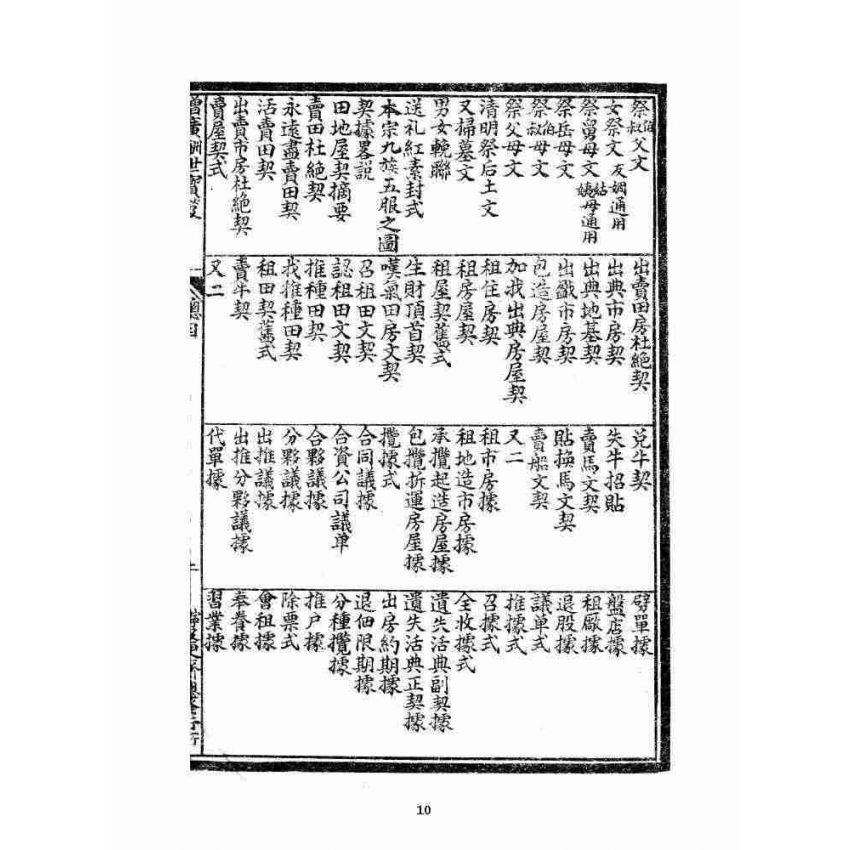 祭伯叔父文
女祭文 友姻通用
祭舅母文 姑姨母通用
祭岳母文
祭伯叔母文
祭父母文
清明祭后土文
又掃墓文
男女輓聯
送礼紅素封式
本宗九族五服之圖
契據畧説
田地屋契摘要
賣田杜絶契
永遠盡賣田契
活賣田契
出賣市房杜絶契
賣屋契式
出賣田房杜絶契
出典市房契
出典地基契
出戤市房契
包造房屋契
加找出典房屋契
租住房契
租房屋契
租屋契舊式
生財頂首契
嘆氣田房文契
召租田文契
認租田文契
推種田契
找推種田契
租田契舊式
賣牛契
又二
兑牛契
失牛招貼
賣馬文契
貼换馬文契
賣船文契
又二
租市房據
租地造市房據
承攬起造房屋據
包攬拆運房屋據
攬據式
合同議據
合資公司議单
合夥議據
分夥議據
出推議據
出推分夥議據
代單據
劈單據
盤店據
租厰據
退股據
議单式
推據式
召據式
全收據式
遺失活典副契據
遺失活典正契據
出房約期據
退佃限期據
分種攬據
推户據
除票式
會租據
奉養據
習業據
增廣酬世寶鑑
總目
10